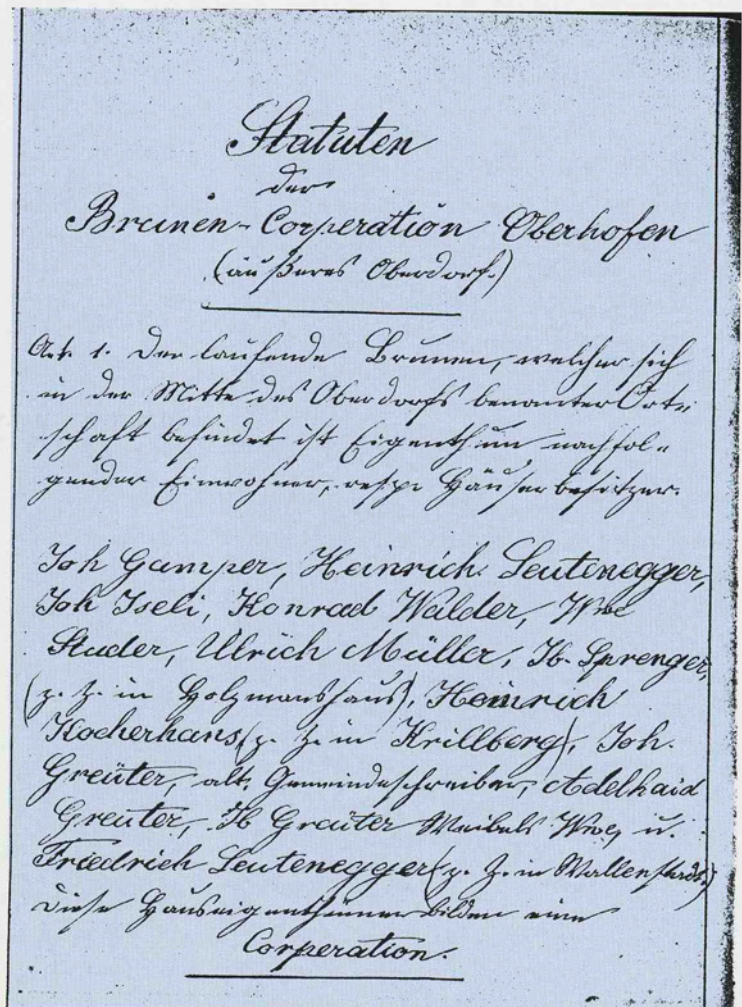 Statuten
der
Brunen-Corperation Oberhofen
(äußeres Oberdorf.)
Art. 1. Der laufende Brunen, welcher sich
in der Mitte des Oberdorfs benanter Ort-
schaft befindet ist Eigenthum nachfol-
gender Einwohner, respe Häuserbesitzer.
Joh Gamper, Heinrich Leutenegger,
Joh Iseli, Konrad Walder, Wwe
Studer, Ulrich Müller, Jb. Sprenger,
(z. Z. in Holzmanshaus), Heinrich
Kocherhans (z. Z. in Krillberg), Joh.
Greüter, alt. Gemeindeschreiber, Adelhaid
Greuter, Jb Greüter Weibels Wwe, u.
Friedrich Leutenegger (z. Z. in Wallenstadt.)
Diese Hauseigenthümer bilden eine
Corperation.